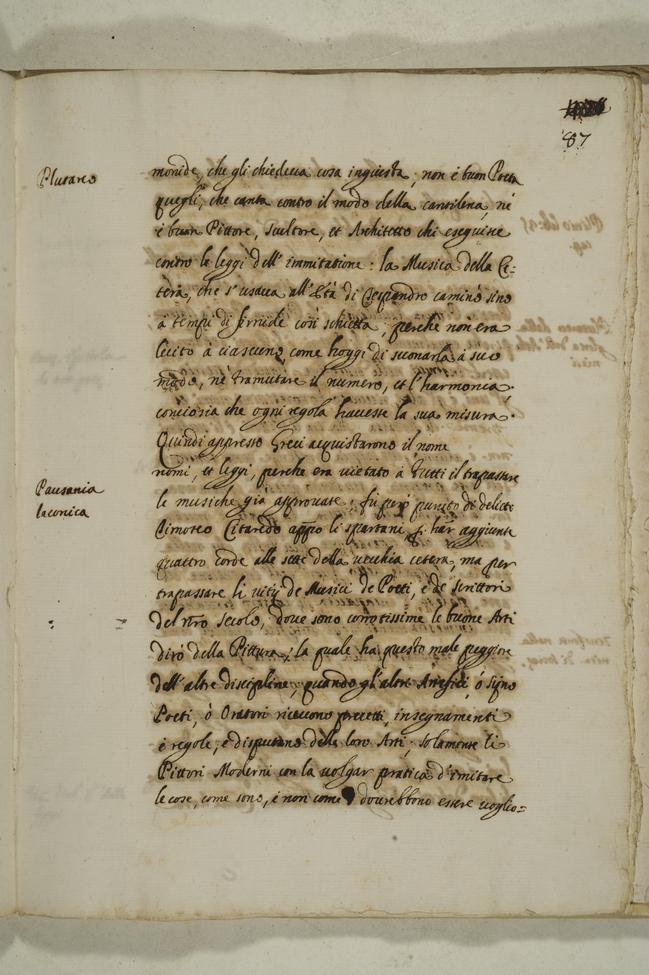 87
Plutarco
monide, che gli chiedeva cosa ingiusta; non è buon Poeta
quegli, che canta contro il modo della cantilena, nè
è buon Pittore, Scultore, et Architetto chi eseguisce
contro le leggi dell' immitatione: la Musica della Ce=
tera, che s'usava all' Età di Terpandro caminò sino
à tempi di così schietta; perche non era
lecito à ciascuno come hoggi di suonarla à suo
modo, nè tramutare il numero, et l'harmonica,
conciosia che ogni regola havesse la sua misura.
Quindi appresso Greci acquistarono il nome
nomi, et leggi, perche era vietato à tutti il trapassare
Pausania
laconica
le musiche già approvate; fù però punito de delitto
Timoteo Citaredo appo li spartani p har aggiunte
quattro corde alle sette della vecchia cetera, ma per
trapassare li vitij de Musici de Poeti, e de Scrittori
del nro secolo, dove sono corrottissime le buone Arti
dirò della Pittura; la quale ha questo male peggiore
dell' altre discipline, quando gl'altri Artefici, ò siano
Poeti, ò Oratori ricevono precetti, insegnamenti
e regole, e disputano delle loro Arti; solamente li
Pittori Moderni con la volgar pratica d'imitare
le cose, come sono, e non come dovrebbono essere voglio=